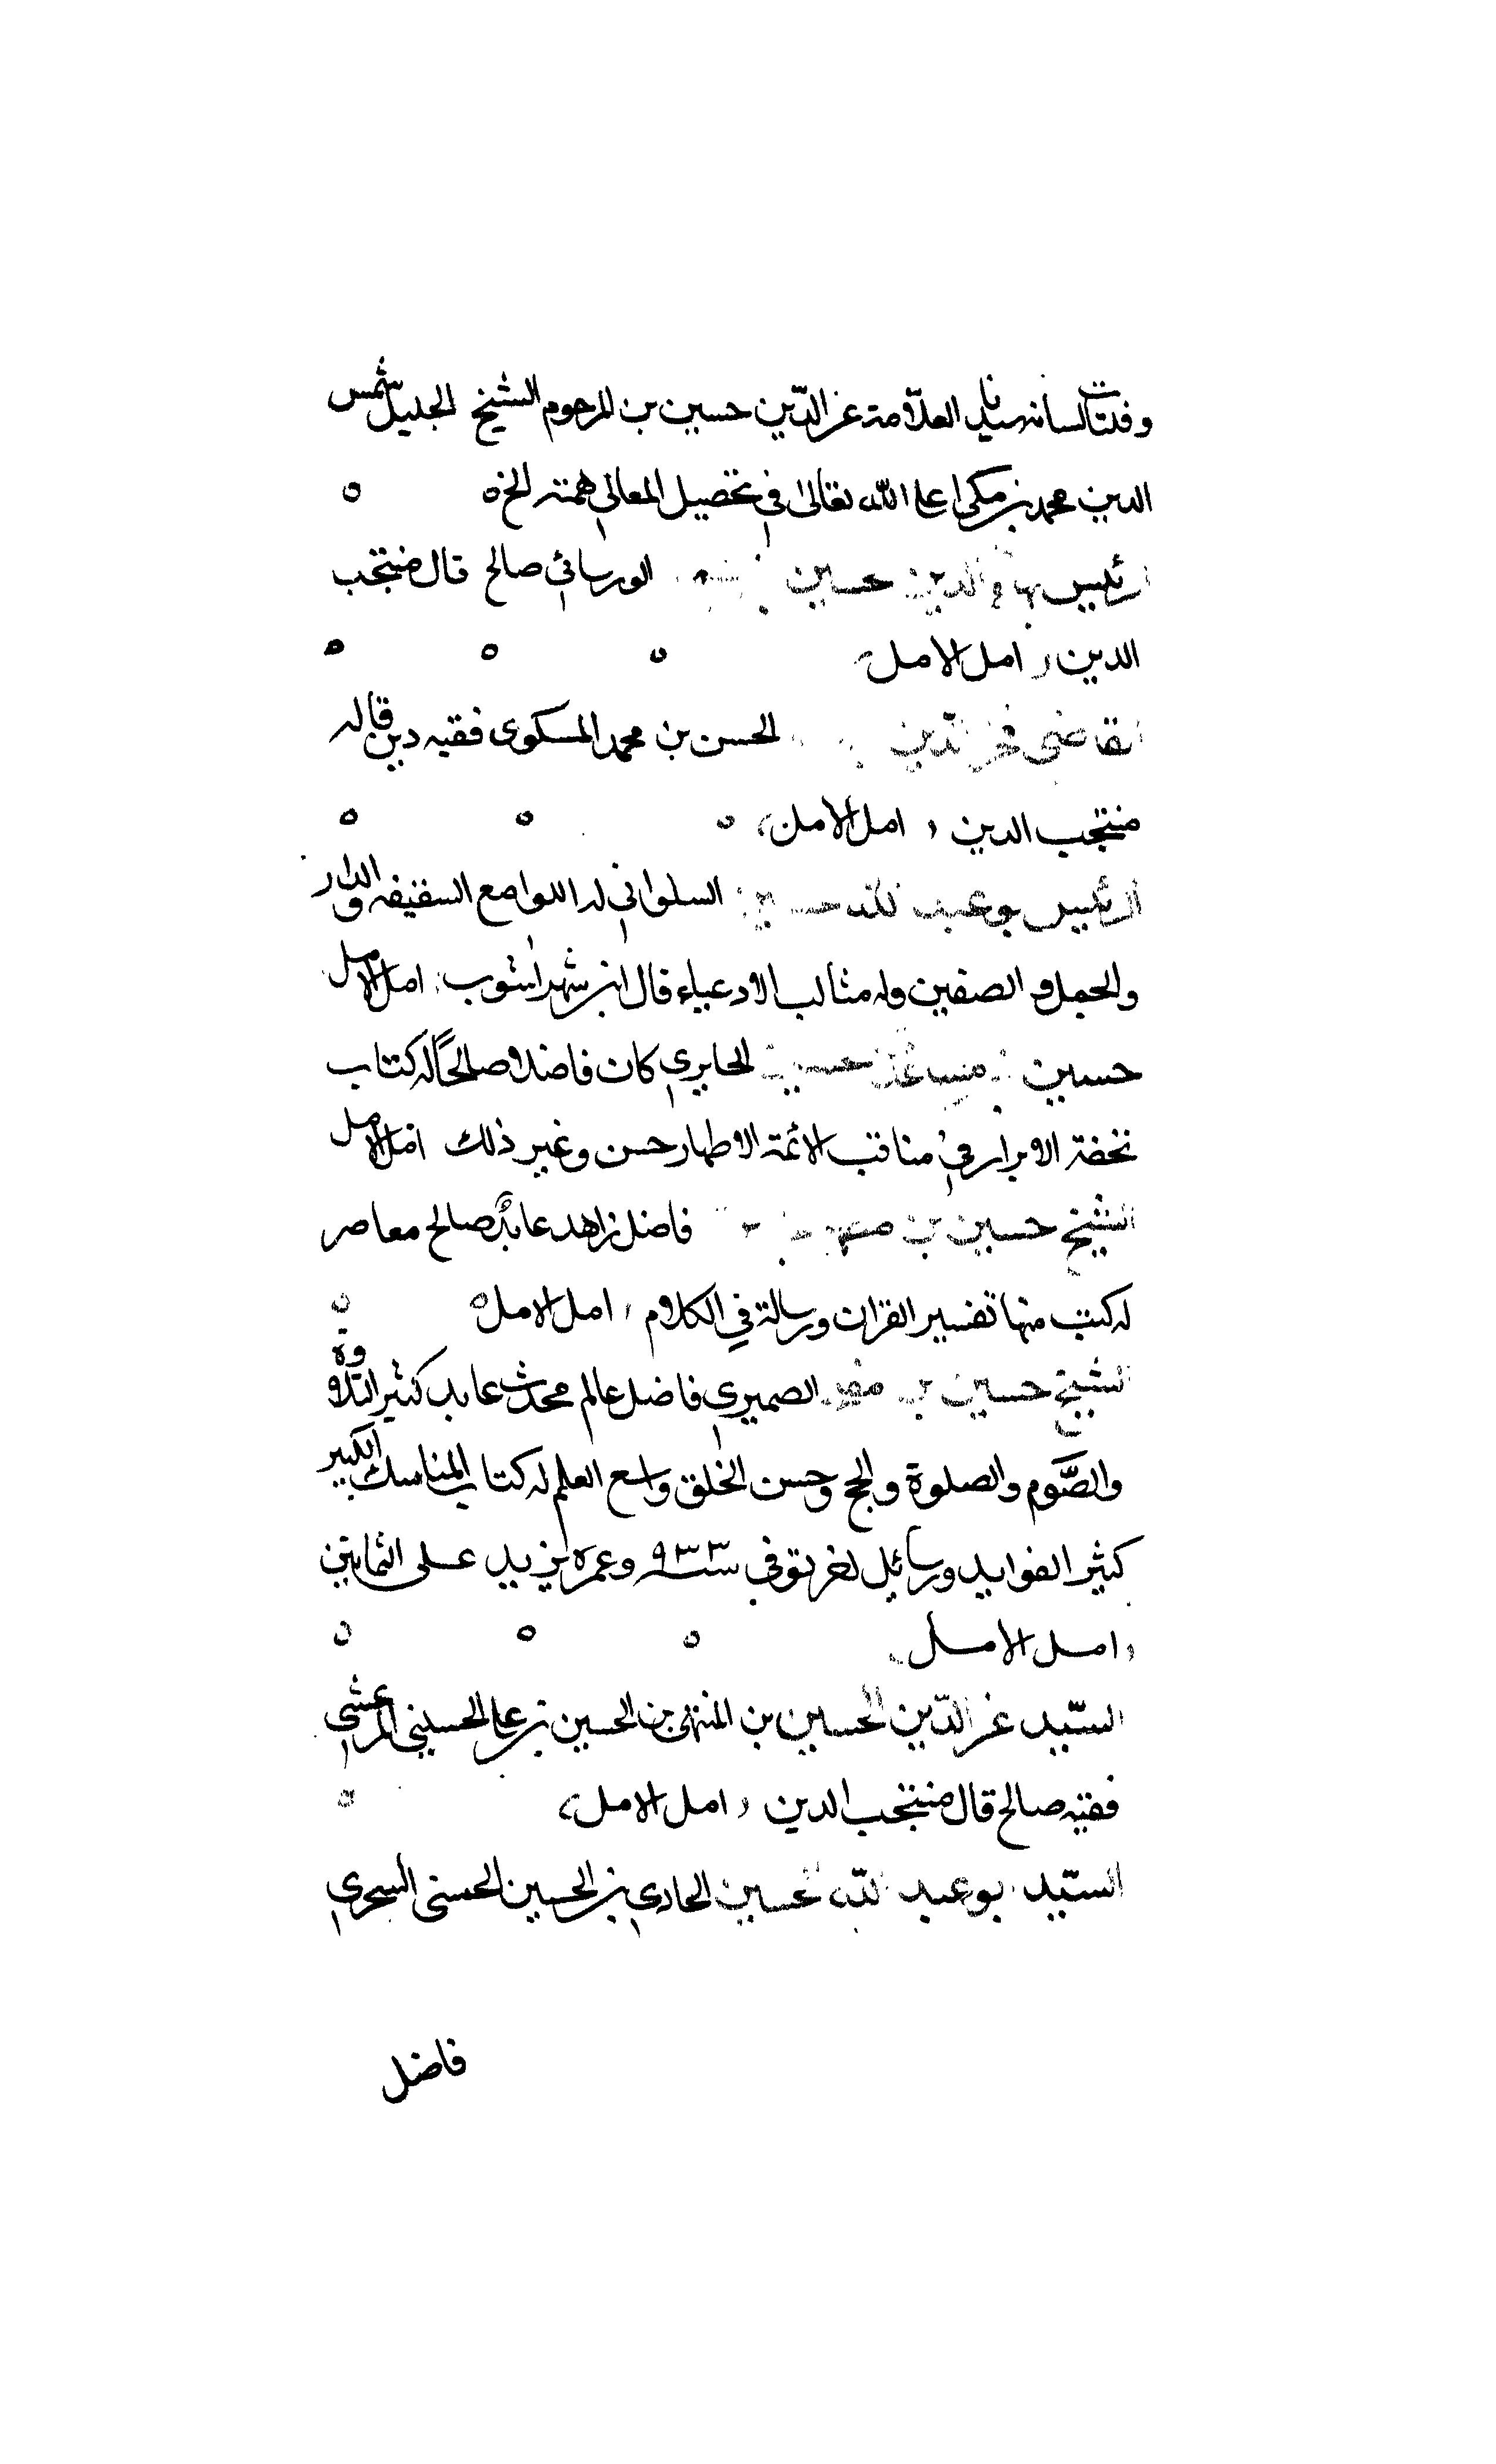 العلامة عز الدّين حسين بن المرحوم الشيخ الجليل شمس
الدين محمد بن مكي اعلى الله تعالى في تحصيل المعالي همته الخ ه
الرئيس بهاء الدين حسين الورساني صالح قال منتجب
الدين امل الامل
القاضى فخر الدين الحسن بن محمد المسكوى فقيه دين قاله
منتجب الدين امل الامل
الرئيس بو عبد الله حسين السلواني له اللوامع السقيفه والدار
والجمل والصفين وله مثالب الادعياء قال ابن شهراشوب امل الامل
حسين بن مساعد حسين الحايري كان فاضلا صالحاً له كتاب
تحفة الابرار في مناقب الائمة الاطهار حسن وغير ذلك امل الامل
الشيخ حسين بن فاضل زاهد عابد صالح معاصر
له كتب منها تفسير القران ورسالة في الكلام امل الامل
الشيخ حسين بن مفلح الصميري فاضل عالم محدث عابد كثير التلاوة
والصَّوم والصلوة والحج وحسن الخلق واسع العلم له كتاب المناسك الكبير
كثير الفوايد ورسائل اخر توفي سنة ٩٣٣ وعمره يزيد على الثمانين
امل الامل
السّيد عز الدّين الحسين بن المنتهى بن الحسين بن علي الحسيني المرعشي
فقيه صالح قال منتجب الدين امل الامل
السّيد بو عبد الله حسين الهادي بن الحسين الحسنى الشجري
فاضل